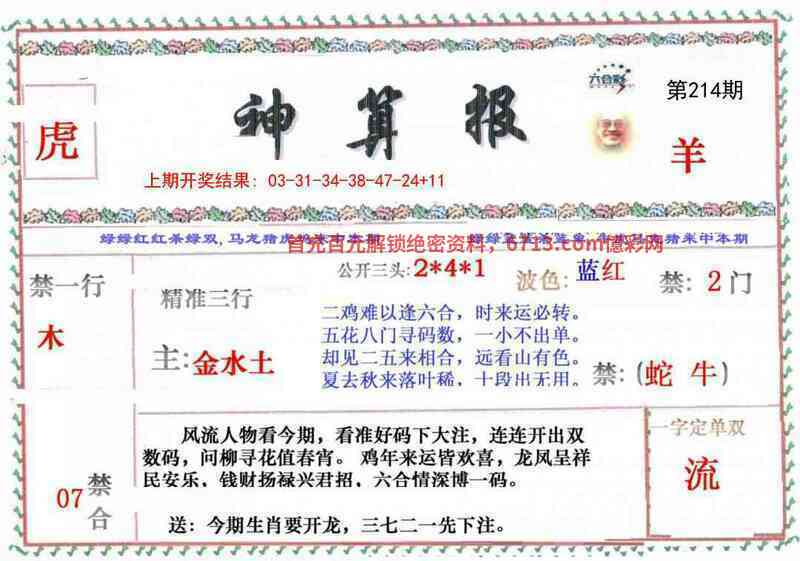 神算报
六合彩
第214期
虎
羊
上期开奖结果：03-31-34-38-47-24+11
首充百元解锁绝密资料，0713.com億彩网
禁一行
木
精准三行
主:金水土
公开三头:2*4*1
波色:蓝红
禁:2门
二鸡难以逢六合，时来运必转。
五花八门寻码数，一小不出单。
却见二五来相合，远看山有色。
夏去秋来落叶稀，十段出无用。
禁:(蛇 牛)
07禁合
风流人物看今期，看准好码下大注，连连开出双
数码，问柳寻花值春宵。鸡年来运皆欢喜，龙凤呈祥
民安乐，钱财扬禄兴君招，六合情深博一码。
送：今期生肖要开龙，三七二一先下注。
一字定单双
流